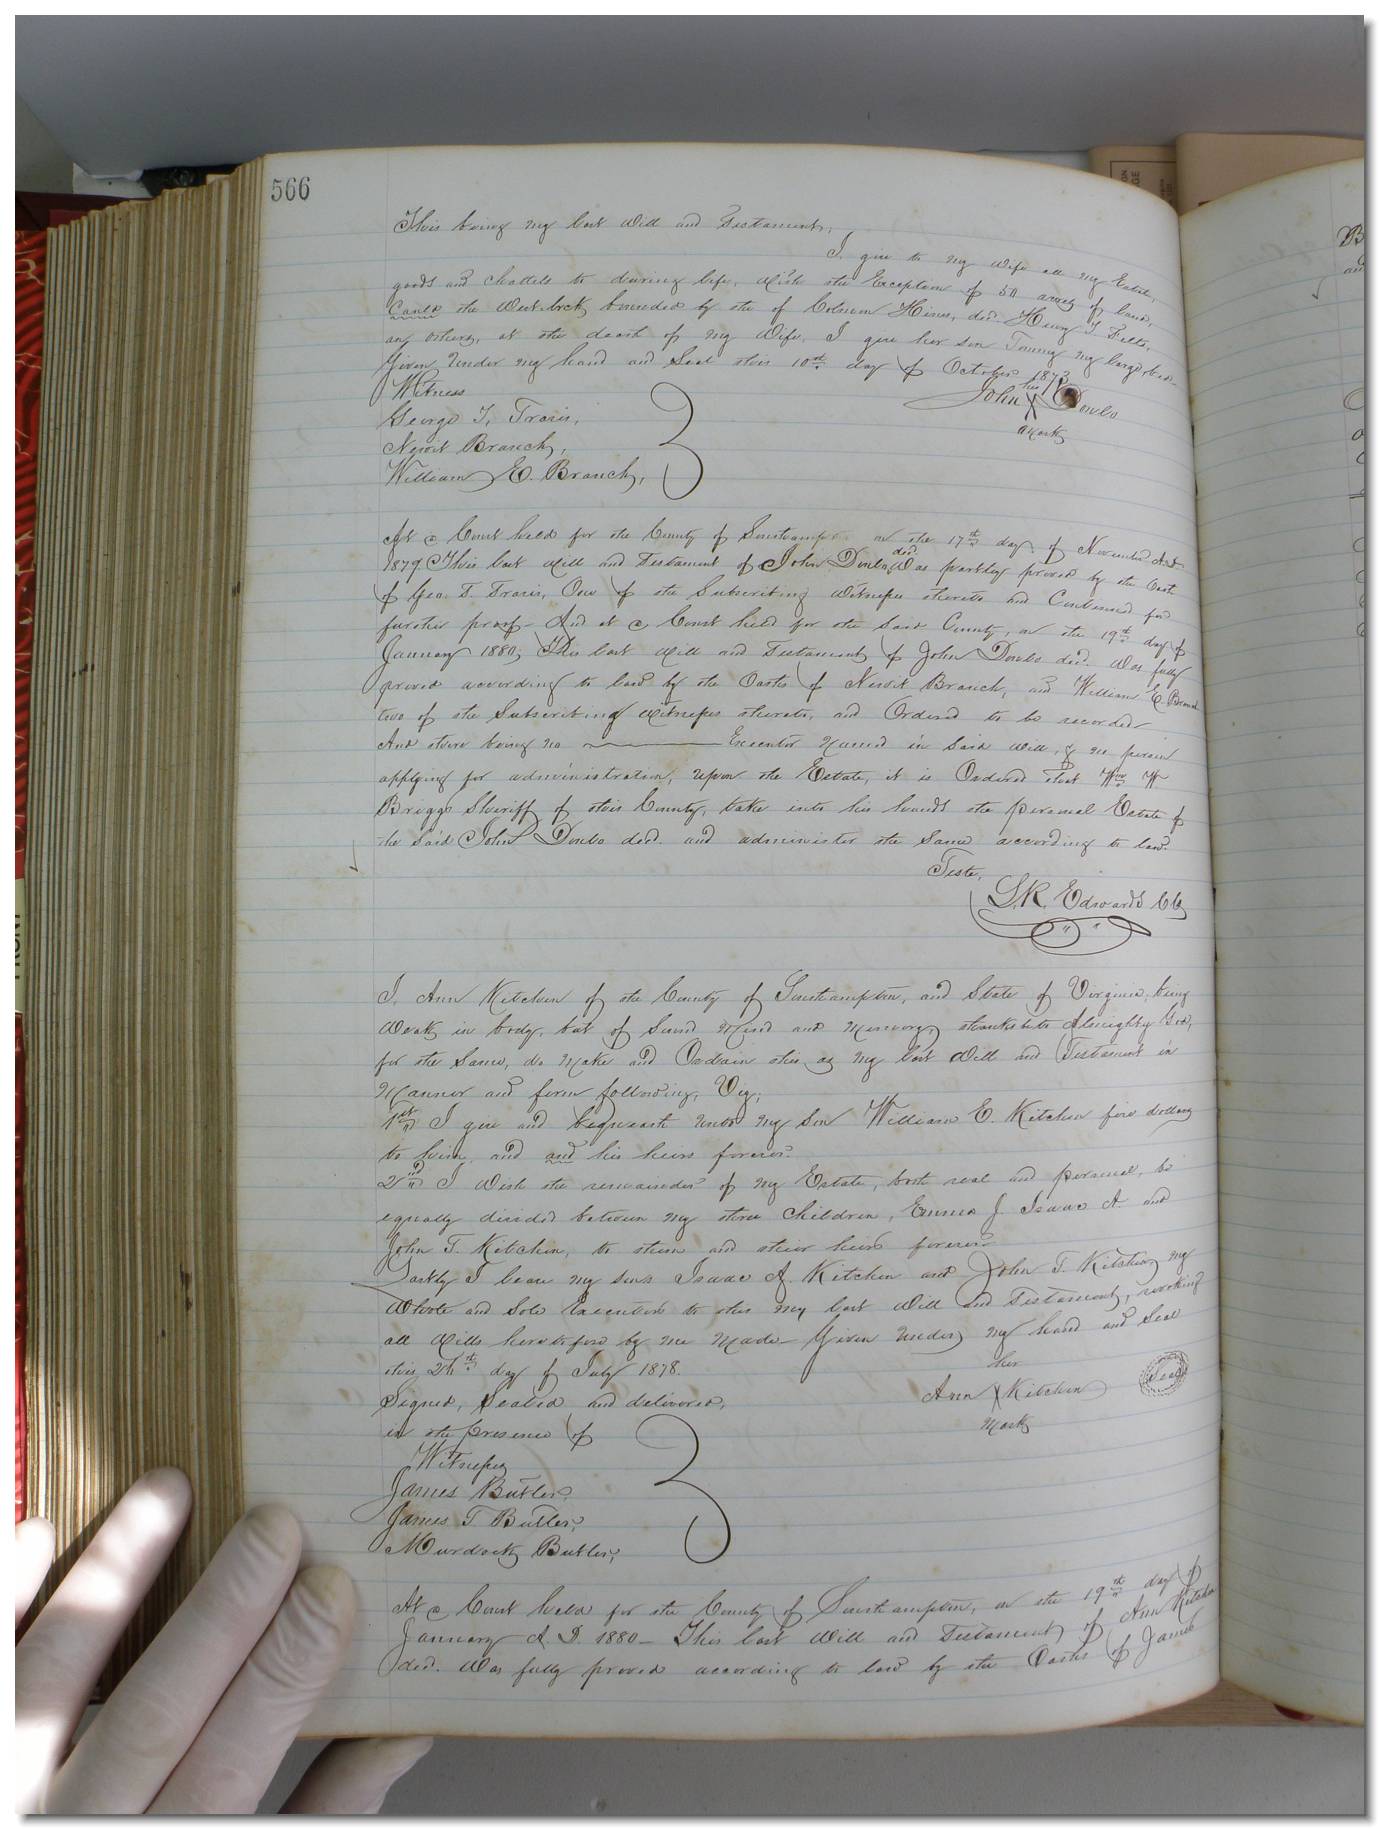 566
This being my last Will and Testament,
I give to my wife all my Estate,
goods and chattels to during life, With the Exception of 50 acres of land,
Called the West-neck, bounded by the of Coleman Hines, decd. Henry T. Felts,
an others, at the death of my Wife, I give her son Tommy my large bed
Given Under my hand and Seal this 10th day of October 1873
Witness
his
John X Dowlo
mark
George T. Travis,
Newit Branch,
William E. Branch,
At a Court held for the County of Southampton on the 17th day of November A.D.
1879 This last Will and Testament of John decd. Was partly proved by the Oath
of Geo. T. Travis, One of the Subscribing Witnesses thereto and Continued for
further proof - And at a Court held for the Said County, on the 19th day of
January 1880, This last Will and Testament of John decd. Was fully
proved according to law by the Oaths of Newit Branch, and William E. Branch
two of the Subscribing Witnesses thereto, and Ordered to be recorded
And there being no Executor Named in Said Will, & no person
applying for administration, upon the Estate, it is Ordered that Wm W
Briggs Sheriff of this County, take into his hands the personal Estate of
the Said John decd. and administer the Same according to law.
Teste,
L.R. Edwards CC
I, Ann Kitchen of the County of Southampton, and State of Virginia, being
Weak in body, but of Sound Mind and Memory, thanks be to Almighty God,
for the Same, do Make and Ordain this as my last Will and Testament in
Manner and form following, Viz;
1st I give and bequeath unto my Son William E. Kitchen five dollars
to him, and and his heirs forever.
2nd I Wish the remainder of my Estate, both real and personal, be
equally divided between my three Children, Emma J. Isaac A. and
John T. Kitchen, to them and their heirs forever
Lastly I leave my sons Isaac A. Kitchen and John T. Kitchen my
Whole and Sole Executors to this my last Will and Testament, revoking
all Wills heretofore by me Made - Given Under my hand and Seal
this day of July 1878.
her
Ann X Kitchen Seal
mark
Signed, Sealed and delivered,
in the presence of
Witnesses
James Butler,
James T Butler,
Murdock Butler,
At a Court held for the County of Southampton, on the 19th day of
January A. D. 1880 - This last Will and Testament of Ann Kitchen
decd. Was fully proved according to law by the Oaths of James